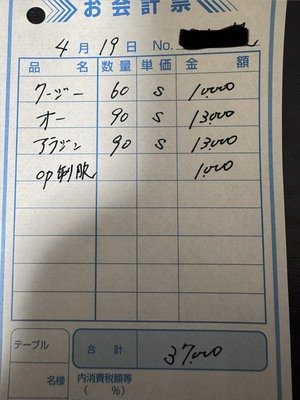 お会計票
4月19日 No.
品名 数量 単価 金額
クージー 60 S 10,000
オー 90 S 13,000
アラジン 90 S 13,000
op制服 1,000
テーブル
名様
合計 37,000
内消費税額等
( %)